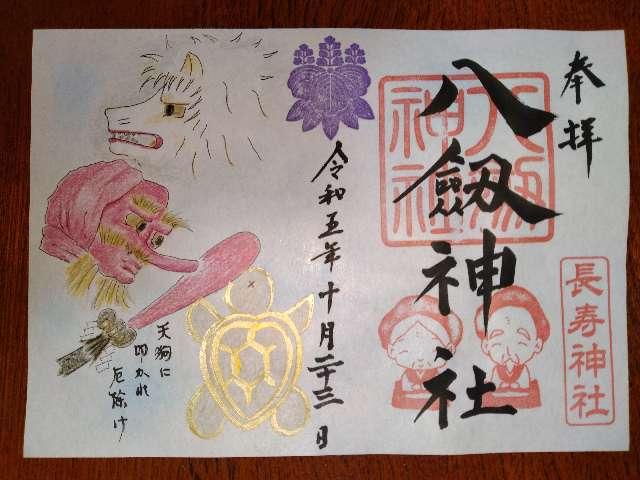 奉拝
八劔神社
八劔
神社
長寿神社
令和五年十月二十三日
天狗に
叩かれ
厄除け